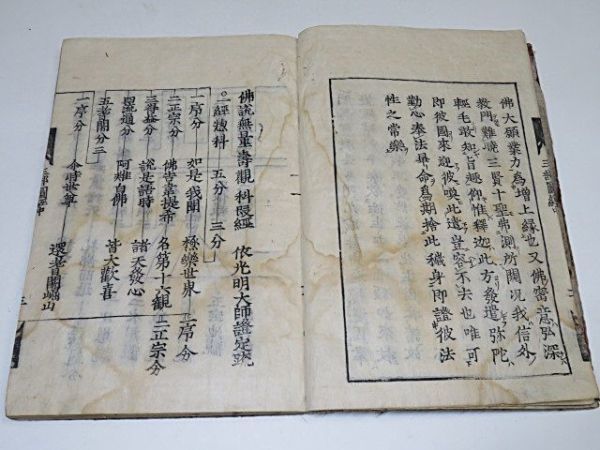 佛大願業力爲增上縁也又佛密意弘深
教門難曉三賢十聖弗測所闚況我信外
輕毛敢知旨趣仰惟釋迦此方發遣彌陀
即彼國來迎彼喚此遣豈容不去也唯可
勤心奉法畢命爲期捨此穢身即證彼法
性之常樂
佛説無量壽觀科段經 依光明大師證定䟽
一經惣科 五分 三分
一序分 如是我聞 極樂世 一序分
二正宗分 佛告韋提希 名第十六觀 二正宗分
三得益分 説是語時 諸天發心
四流通分 阿難白佛
五耆闍分三 皆大歡喜
一序分 尒時世尊 還耆闍崛山